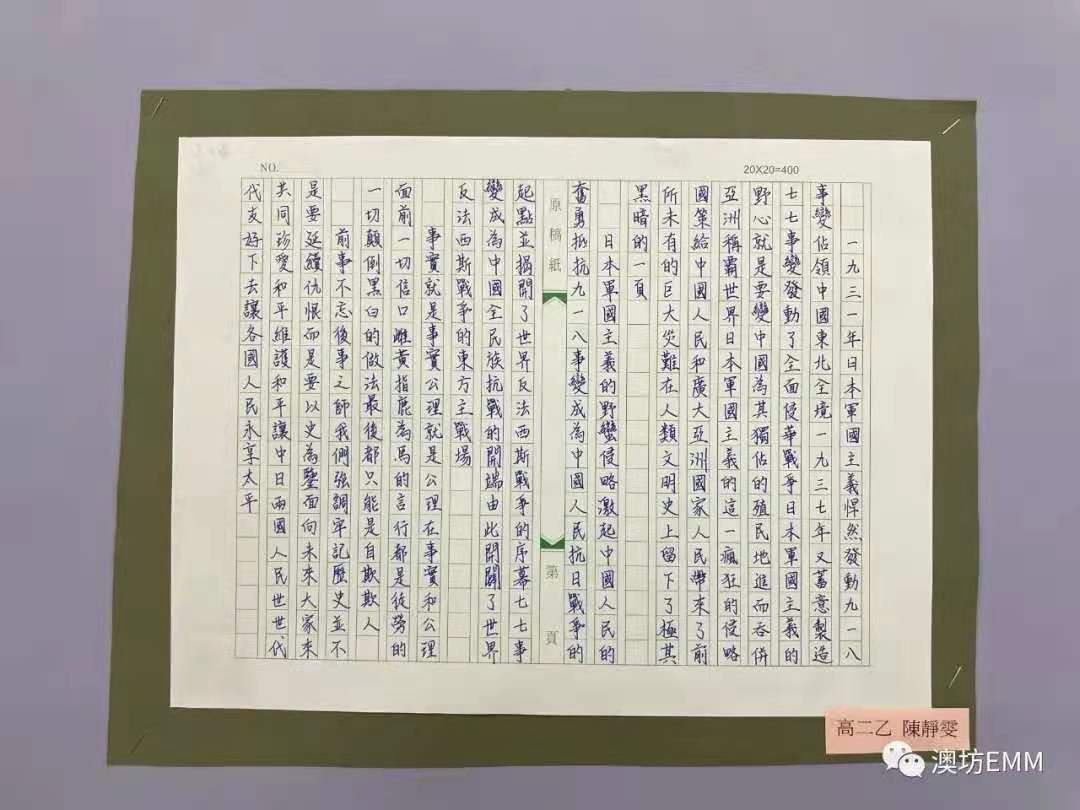 NO.
20X20=400
一九三一年日本軍國主義悍然發動九一八
事變佔領中國東北全境一九三七年又蓄意製造
七七事變發動了全面侵華戰爭日本軍國主義的
野心就是要變中國為其獨佔的殖民地進而吞併
亞洲稱霸世界日本軍國主義的這一瘋狂的侵略
國策給中國人民和廣大亞洲國家人民帶來了前
所未有的巨大災難在人類文明史上留下了極其
黑暗的一頁
日本軍國主義的野蠻侵略激起中國人民的
奮勇抵抗九一八事變成為中國人民抗日戰爭的
原稿紙
第 頁
起點並揭開了世界反法西斯戰爭的序幕七七事
變成為中國全民族抗戰的開端由此開闢了世界
反法西斯戰爭的東方主戰場
事實就是事實公理就是公理在事實和公理
面前一切信口雌黃指鹿為馬的言行都是徒勞的
一切顛倒黑白的做法最後都只能是自欺欺人
前事不忘後事之師我們強調牢記歷史並不
是要延續仇恨而是要以史為鑒面向未來大家來
共同珍愛和平維護和平讓中日兩國人民世世代
代友好下去讓各國人民永享太平
高二乙 陳靜雯
澳坊EMM